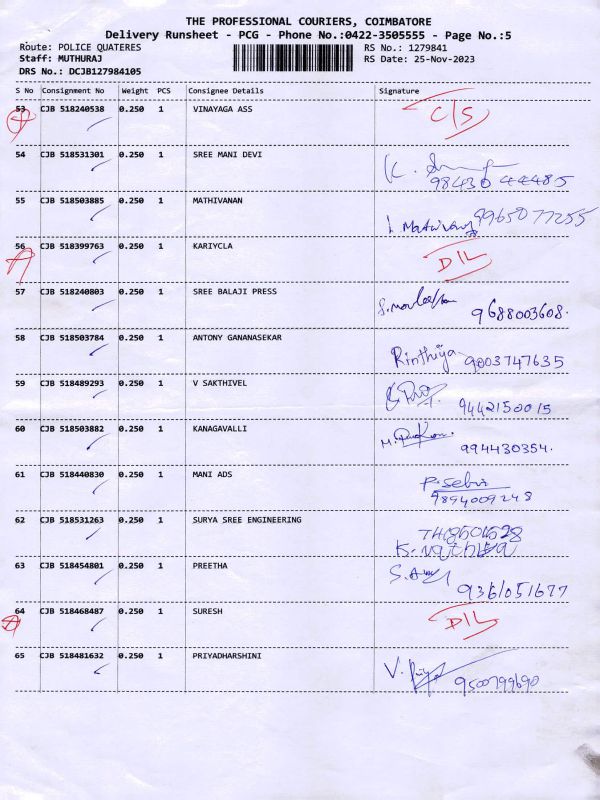 THE PROFESSIONAL COURIERS, COIMBATORE
Delivery Runsheet - PCG - Phone No.:0422-3505555 - Page No.:5
Route: POLICE QUATERES RS No.: 1279841
Staff: MUTHURAJ RS Date: 25-Nov-2023
DRS No.: DCJB127984105
S No Consignment No Weight PCS Consignee Details Signature
53 CJB 518240538 0.250 1 VINAYAGA ASS C/S
54 CJB 518531301 0.250 1 SREE MANI DEVI K.
98430 44485
55 CJB 518503885 0.250 1 MATHIVANAN 9965077255
56 CJB 518399763 0.250 1 KARIYCLA D/L
57 CJB 518240803 0.250 1 SREE BALAJI PRESS 9688003608.
58 CJB 518503784 0.250 1 ANTONY GANANASEKAR Rinthiya 9003747635
59 CJB 518489293 0.250 1 V SAKTHIVEL
9442150015
60 CJB 518503882 0.250 1 KANAGAVALLI M. 994430354.
61 CJB 518440830 0.250 1 MANI ADS P. Sebin
9894009248
62 CJB 518531263 0.250 1 SURYA SREE ENGINEERING
63 CJB 518454801 0.250 1 PREETHA 9361051677
64 CJB 518468487 0.250 1 SURESH D/L
65 CJB 518481632 0.250 1 PRIYADHARSHINI V. 9500799690